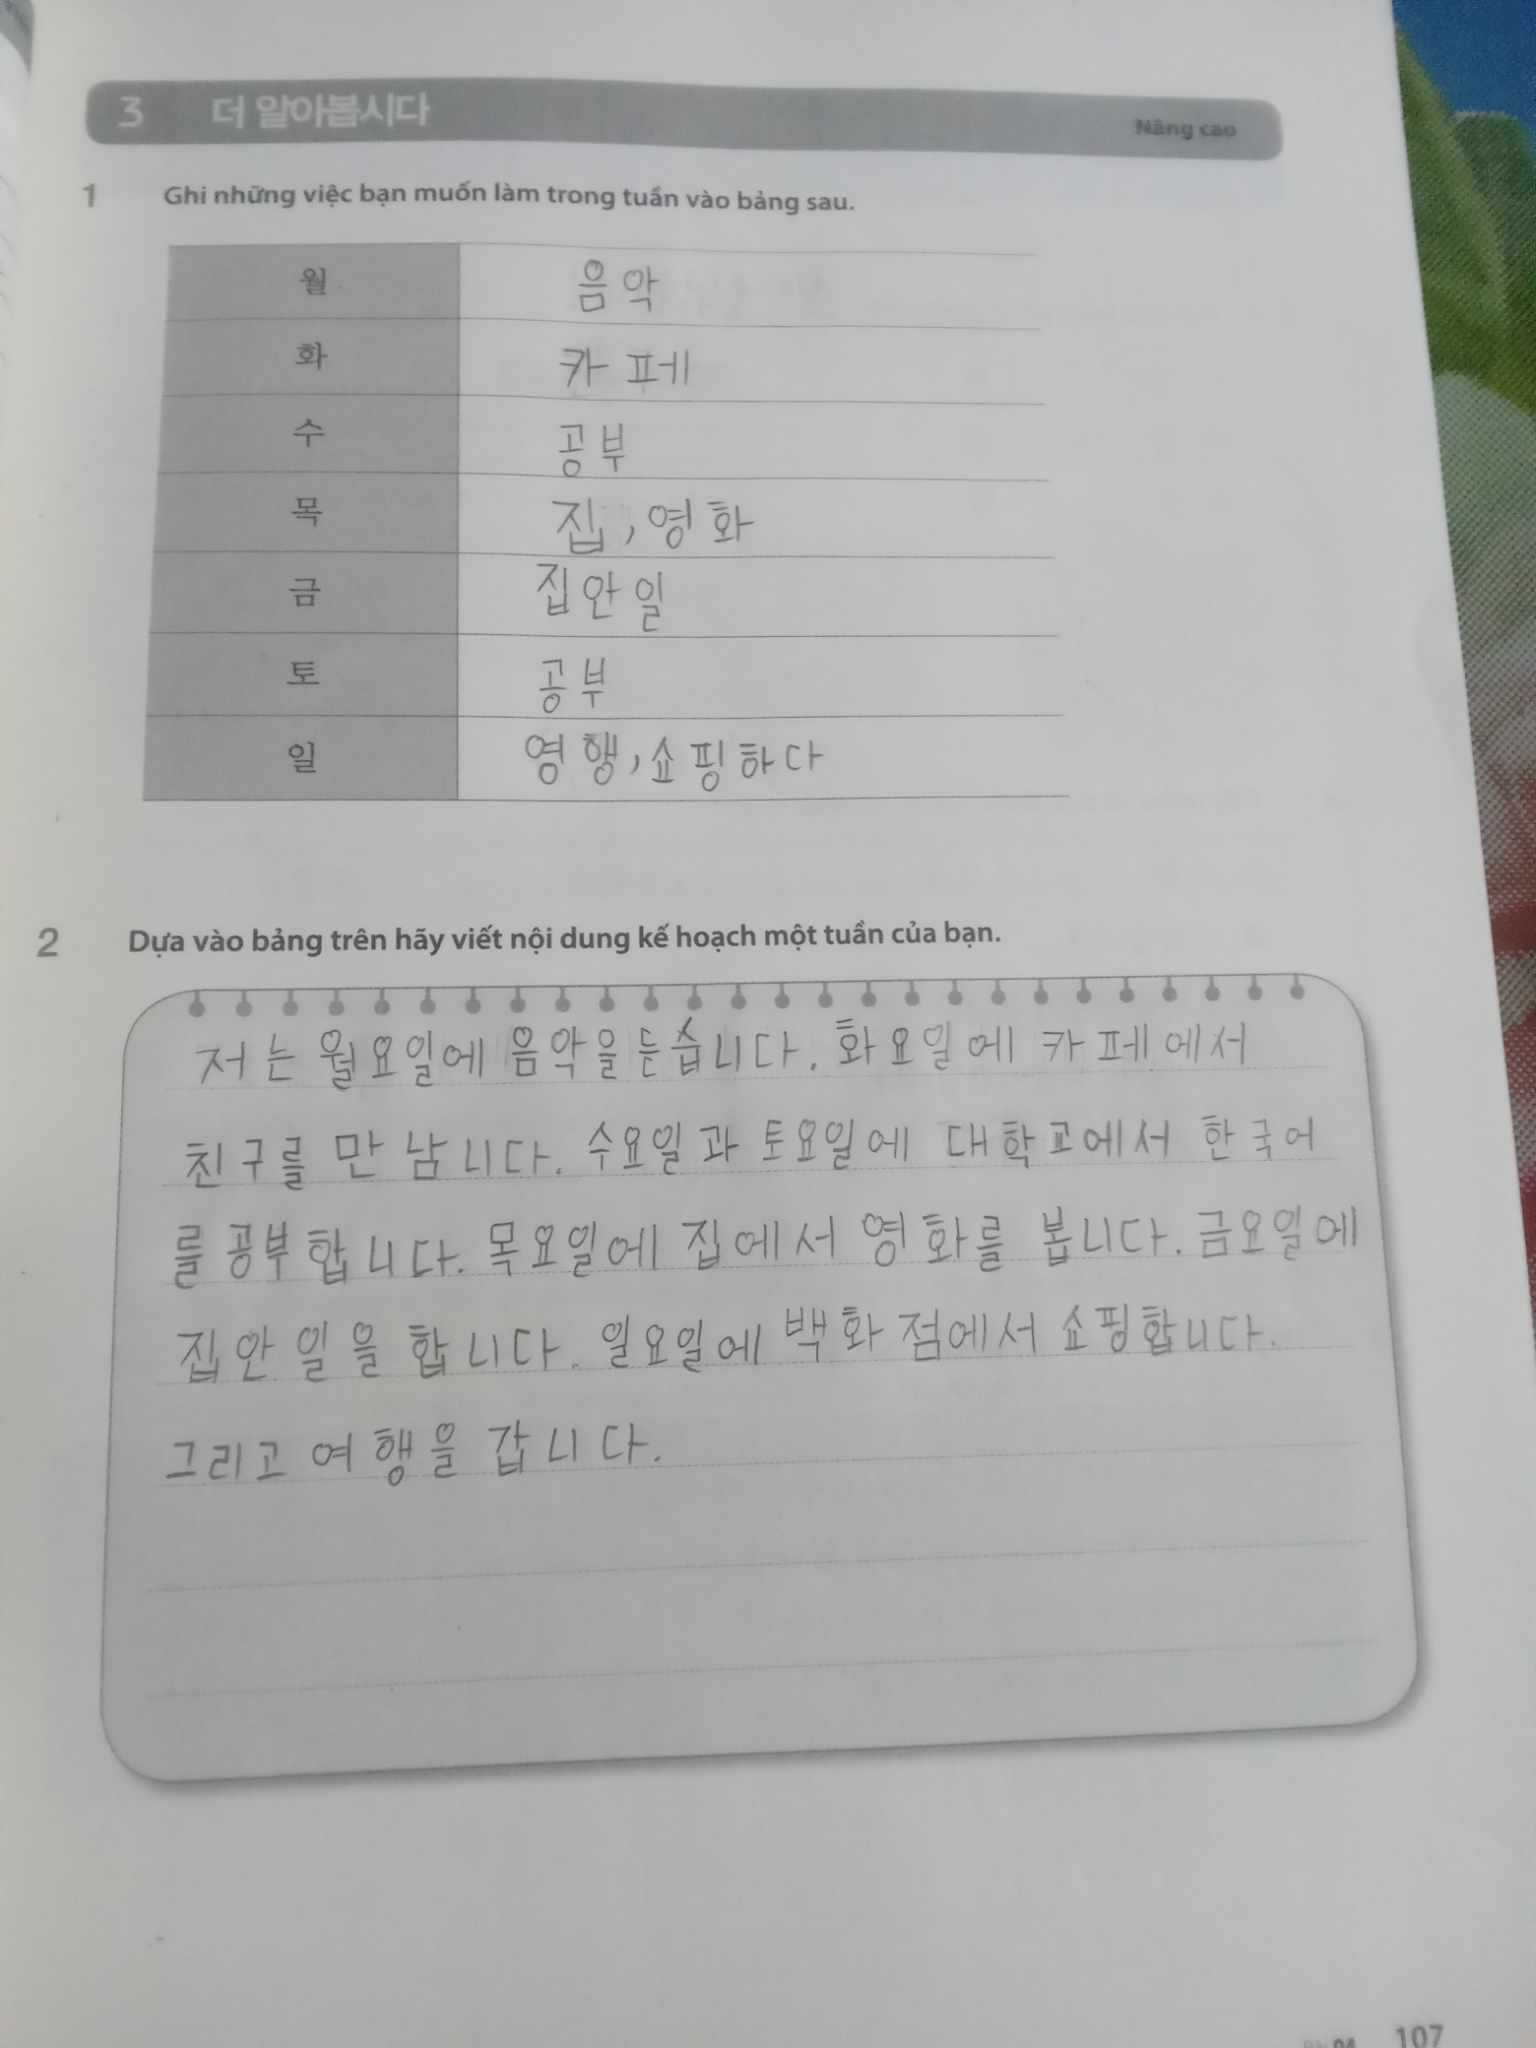 3 더 알아봅시다 Nâng cao
1 Ghi những việc bạn muốn làm trong tuần vào bảng sau.
월 음악
화 카페
수 공부
목 집, 영화
금 집안일
토 공부
일 영행, 쇼핑하다
2 Dựa vào bảng trên hãy viết nội dung kế hoạch một tuần của bạn.
저는 월요일에 음악을 듣습니다. 화요일에 카페에서
친구를 만 남니다. 수요일과 토요일에 대학교에서 한국어
를 공부합니다. 목요일에 집에서 영화를 봅니다. 금요일에
집안일을 합니다. 일요일에 백화점에서 쇼핑합니다.
그리고 여행을 갑니다.
04 107